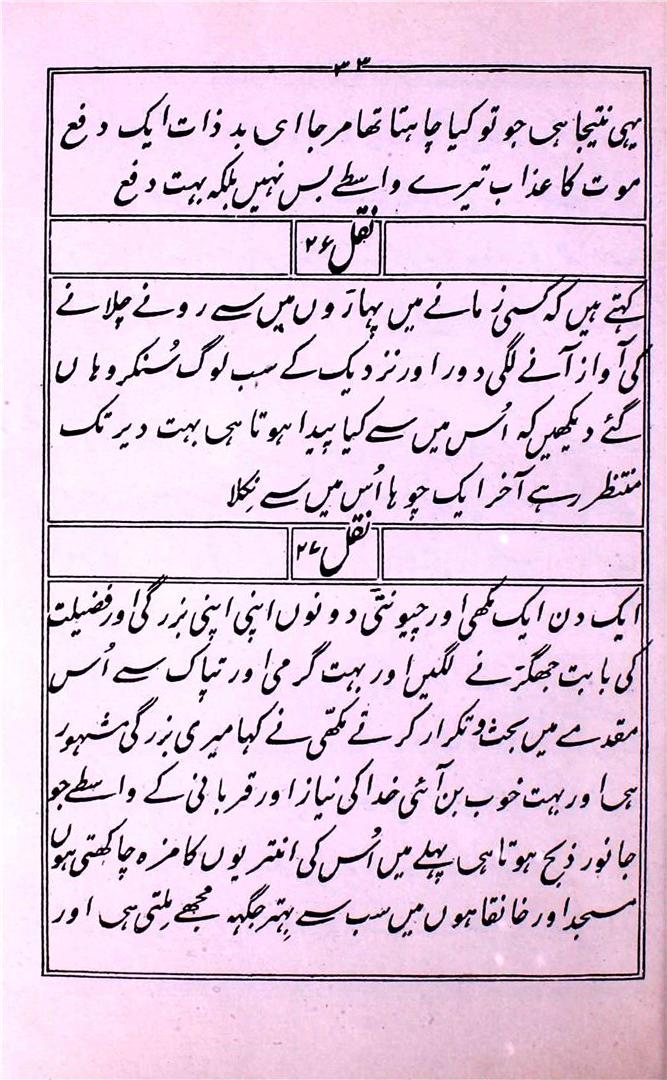 ۳۳
یہی نتیجا ہی جو تو کیا چاہتا تھا مرجا ای بد ذات ایک دفع
موت کا عذاب تیرے واسطے بس نہیں بلکہ بہت دفع
نقل ۲۶
کہتے ہیں کہ کسی زمانے میں پہاڑوں میں سے رونے چلانے
کی آواز آنے لگی دور اور نزدیک کے سب لوگ سُنکر وہاں
گئے دیکھیں کہ اُس میں سے کیا پیدا ہوتا ہی بہت دیر تک
منتظر رہے آخر ایک چوہا اُس میں سے نِکلا
نقل ۲۷
ایک دن ایک مکھی اور چیونٹی دونوں اپنی اپنی بزرگی اور فضیلت
کی بابت جھگڑنے لگیں اور بہت گرمی اور تپاک سے اُس
مقدمے میں بحث و تکرار کرتے مکھّی نے کہا میری بزرگی مشہور
ہی اور بہت خوب بن آئی خدا کی نیاز اور قربانی کے واسطے جو
جانور ذبح ہوتا ہی پہلے میں اُس کی انتڑیوں کا مزہ چاکھتی ہوں
مسجد اور خانقاہوں میں سب سے بِہتر جگہہ مجھے مِلتی ہی اور